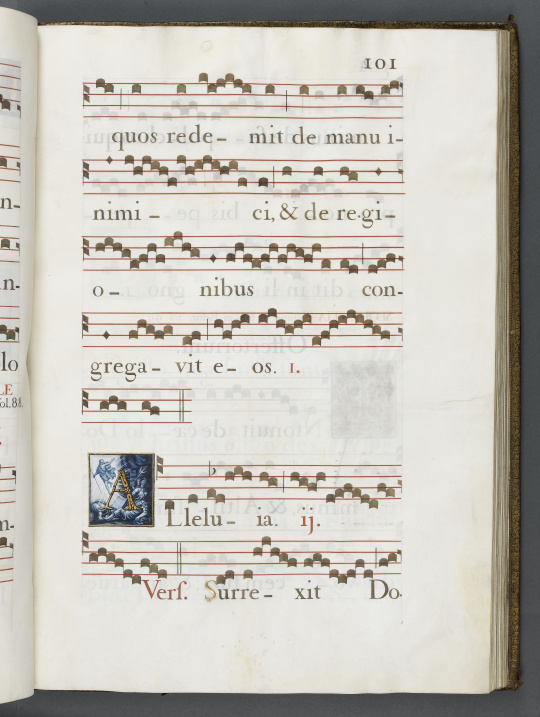 101
quos rede- mit de manu i-
nimi- ci, & de re.gi-
o- nibus con-
grega- vit e- os. 1.
ALlelu- ia. ij.
Vers. Surre- xit Do-
n-
n-
lo
LE
fol. 88.
m-